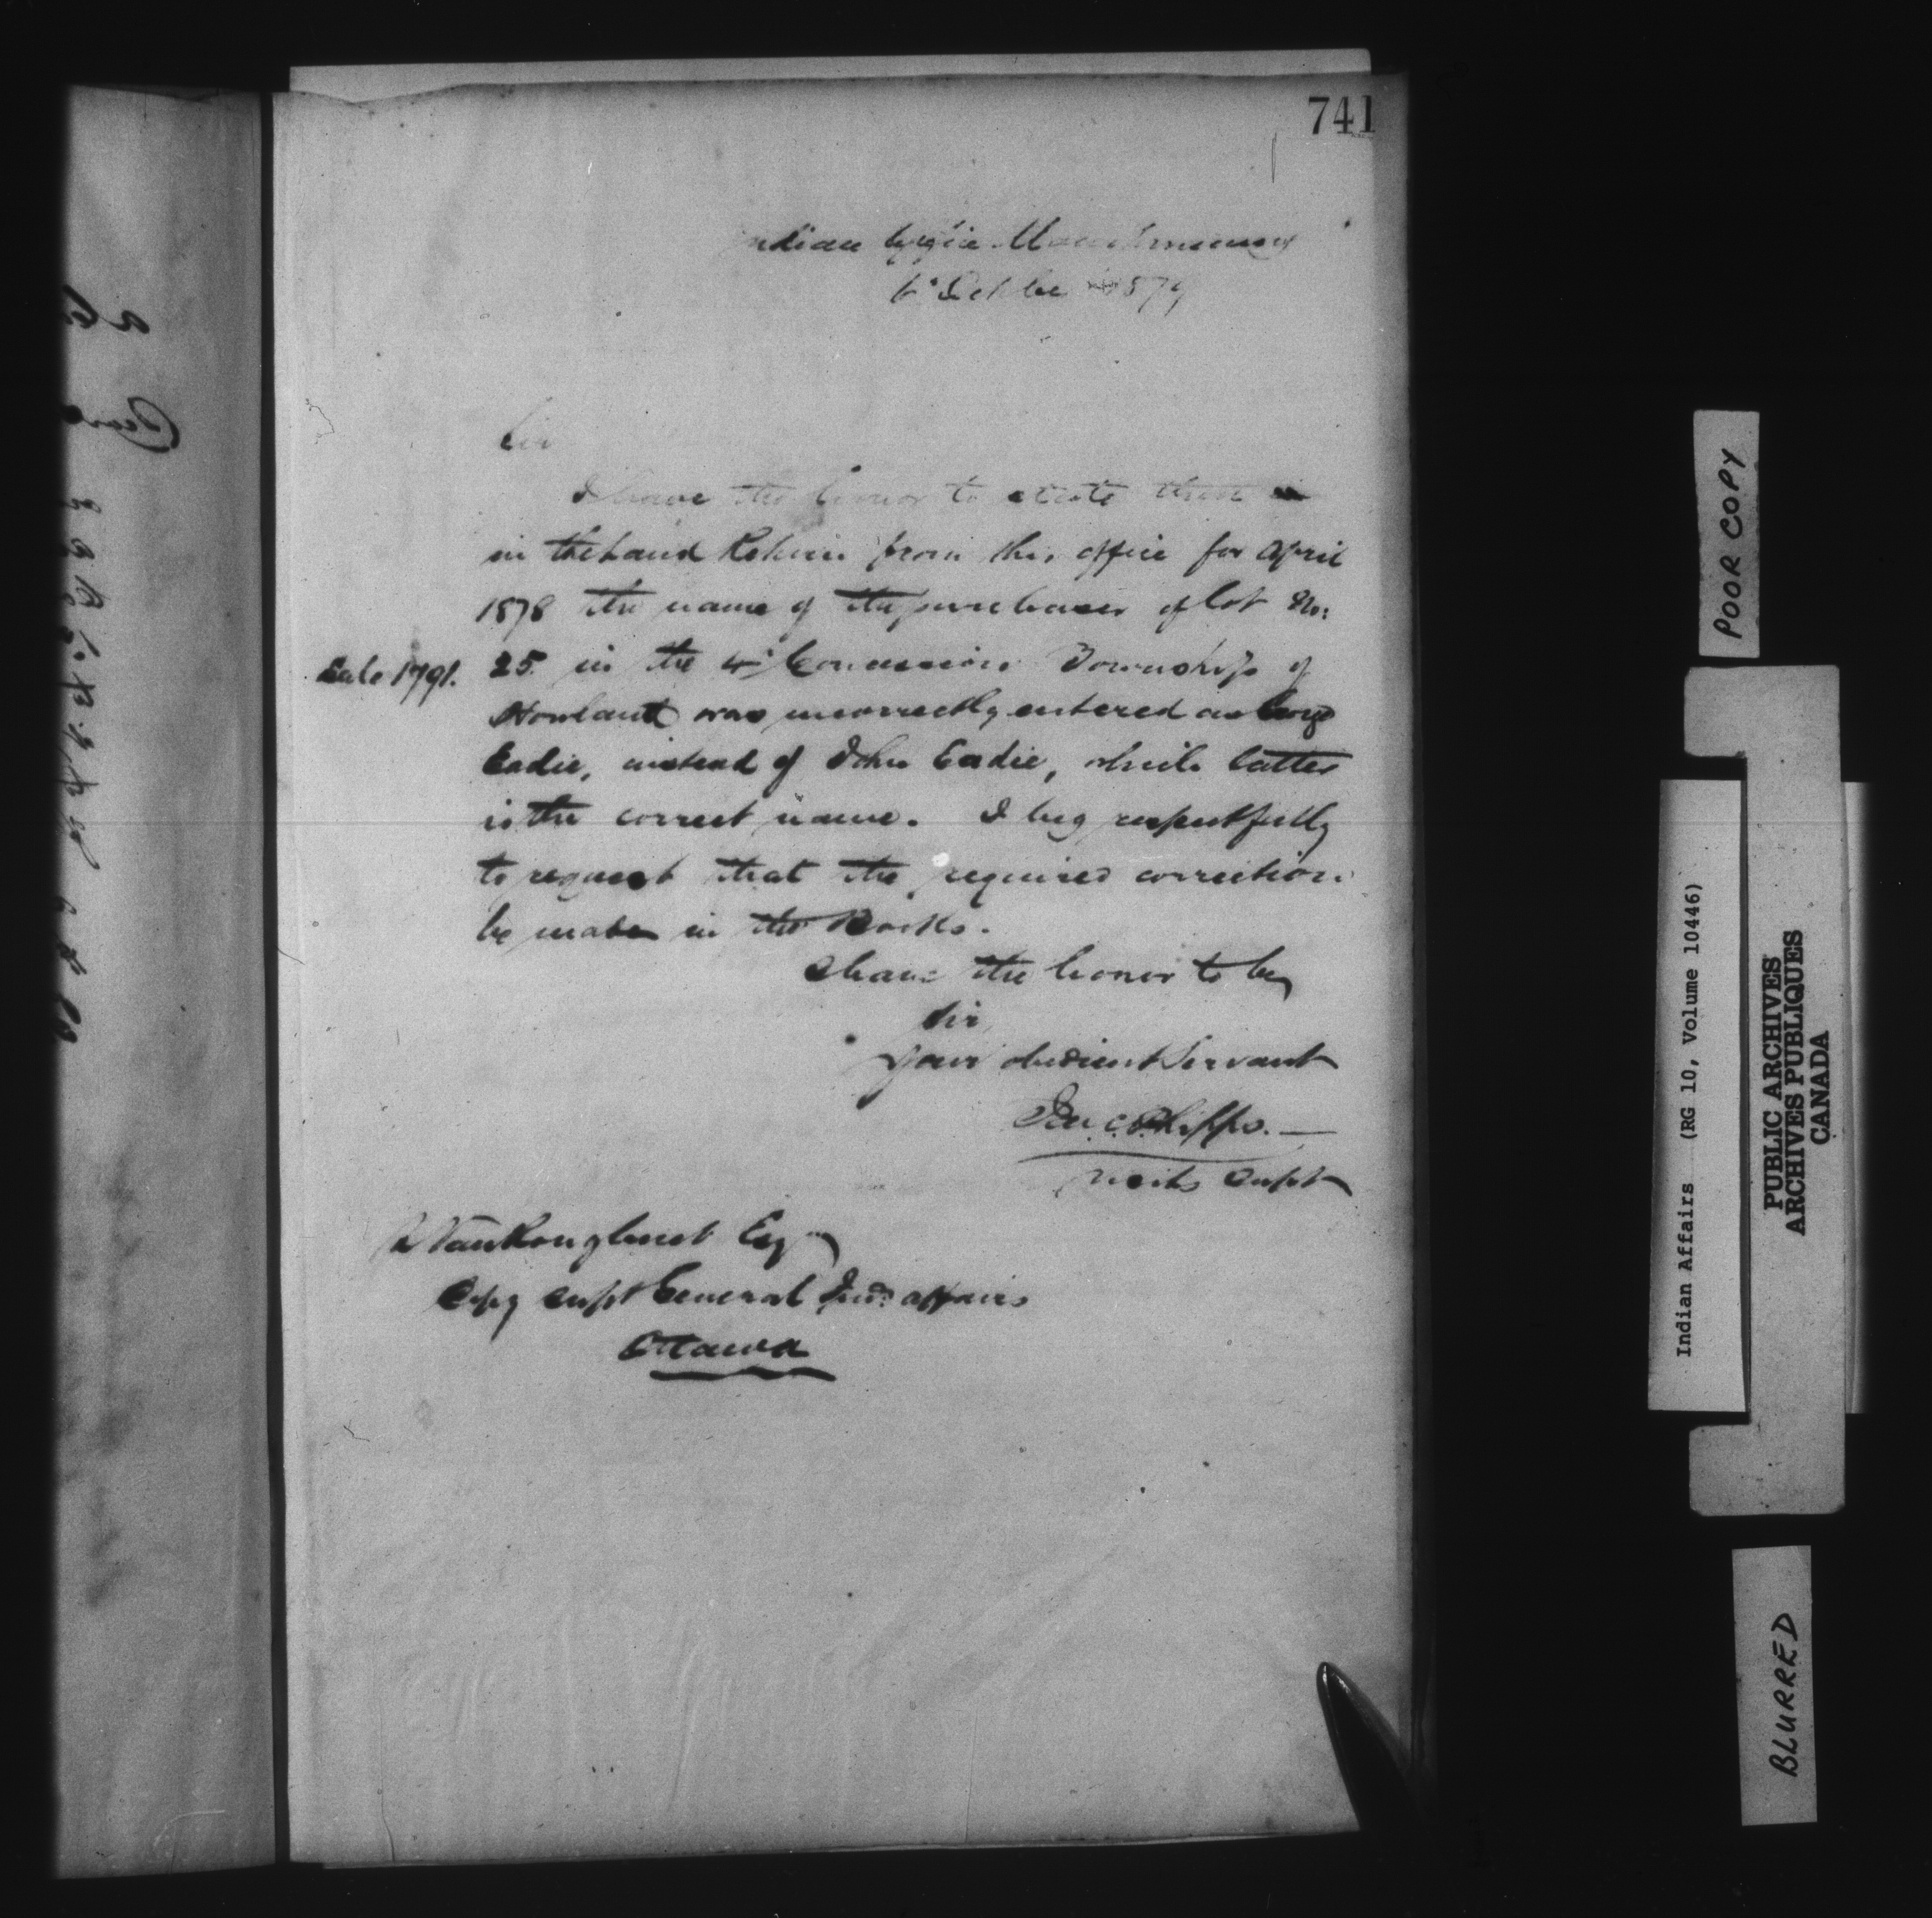 741
Indian Office Manitowaning
6th October 1879
Sir
I have the honor to state that
in the Land Return from this office for April
1878 the name of the purchaser of lot No:
Sale 1791. 25 in the 4th Concession Township of
Howland was incorrectly entered as
Eadie, instead of John Eadie, which latter
is the correct name. I beg respectfully
to request that the required correction
be made in the Books.
I have the honor to be
Sir
Your obedient Servant
Jas C Phipps.
Visitg Supt
L VanKoughnet Esq
Depy Supt General Indn affairs
Ottawa
POOR COPY
Indian Affairs (RG 10, Volume 10446)
PUBLIC ARCHIVES
ARCHIVES PUBLIQUES
CANADA
BLURRED